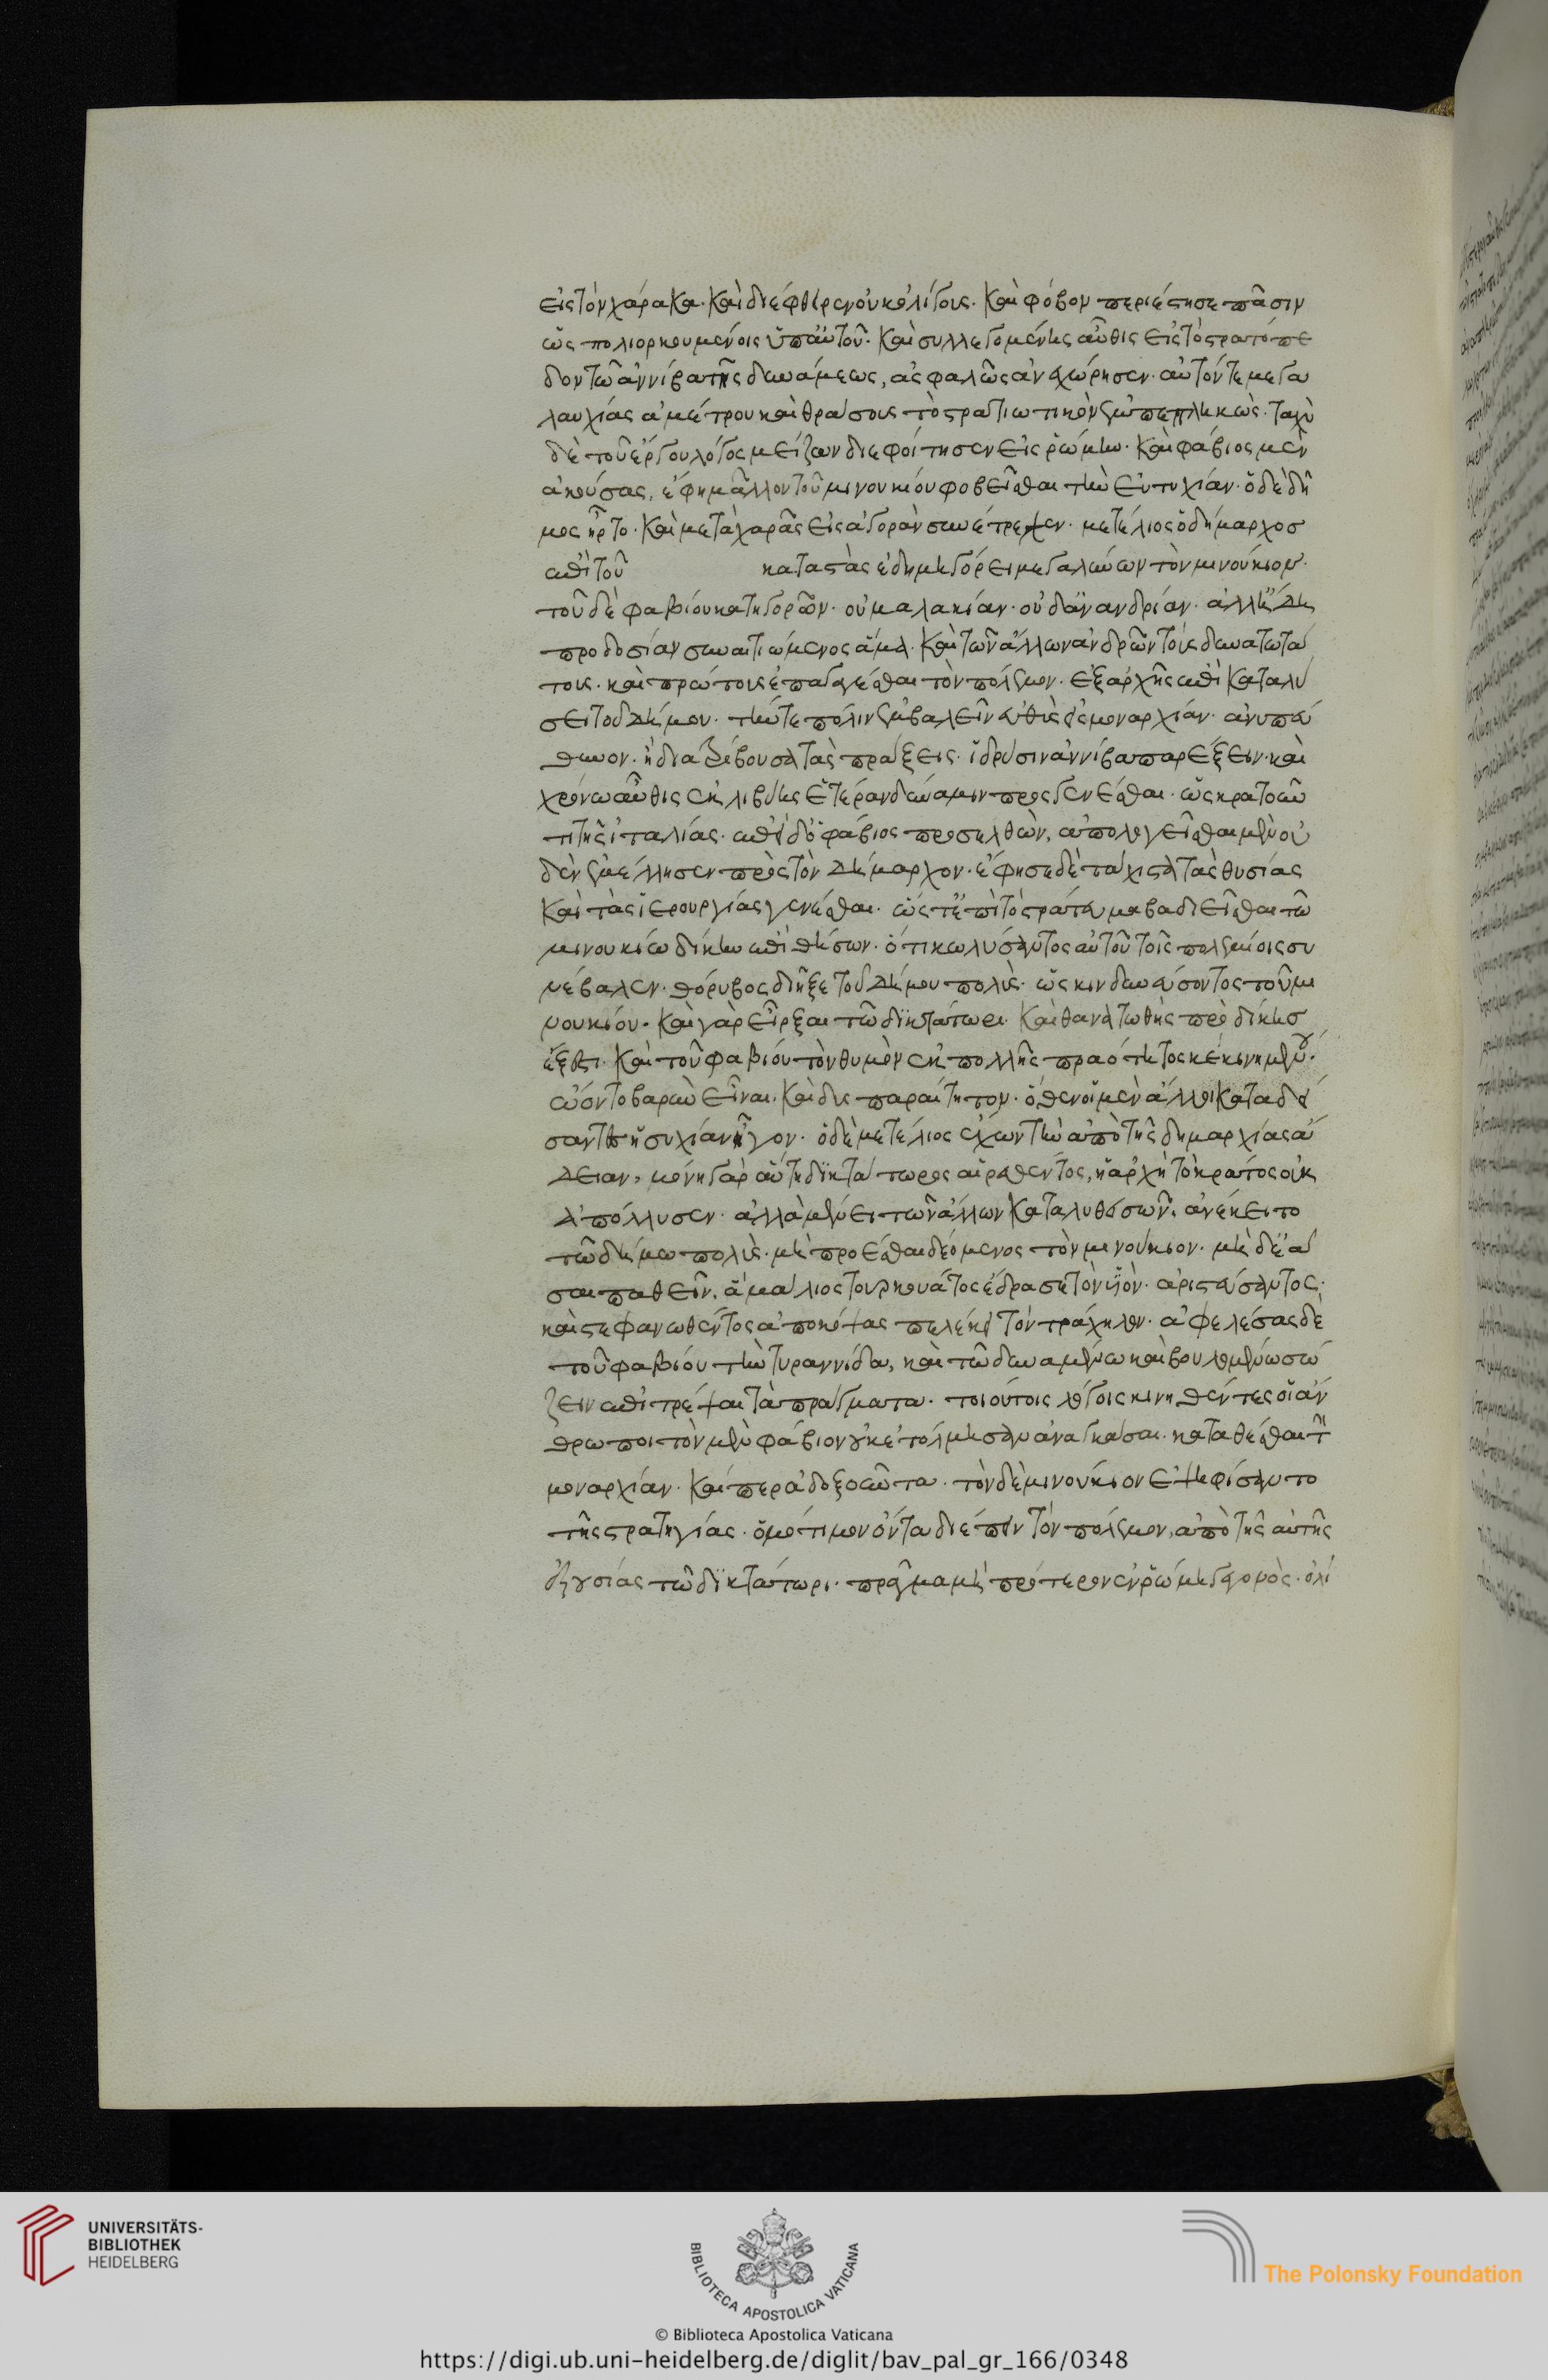 εἰς τὸν χάρακα· καὶ διέφθειρεν οὐκ ὀλίγους· καὶ φόβον περιέστησε πᾶσιν
ὡς πολιορκουμένοις ὑπ' αὐτοῦ· καὶ συλλεγομένης αὖθις εἰς τὸ στρατόπε
δον τῷ ἀννίβᾳ τῆς δυνάμεως, ἀσφαλῶς ἀνεχώρησεν· αὐτόν τε μεγα
λαυχίας ἀμέτρου καὶ θράσους τὸ στρατιωτικὸν ἐμπεπληκώς· ταχὺ
δὲ τοῦ ἔργου λόγος μείζων διεφοίτησεν εἰς ῥώμην· καὶ φάβιος μὲν
ἀκούσας, ἔφη μᾶλλον τοῦ μινουκίου φοβεῖσθαι τὴν εὐτυχίαν· ὁ δὲ δῆ
μος ἦρτο· καὶ μετὰ χαρᾶς εἰς ἀγορὰν συνέτρεχεν· μετέλιος ὁ δήμαρχος
ἐπὶ τοῦ καταστὰς ἐδημηγόρει μεγαλύνων τὸν μινούκιον·
τοῦ δὲ φαβίου κατηγορῶν· οὐ μαλακίαν· οὐδ' ἀνανδρίαν· ἀλλ' ἤδη
προδοσίαν συναιτιώμενος ἅμα· καὶ τῶν ἄλλων ἀνδρῶν τοὺς δυνατωτά
τους· καὶ πρώτους ἐπαγαγέσθαι τὸν πόλεμον· ἐξ ἀρχῆς ἐπὶ καταλύ
σει τοῦ δήμου· τήν τε πόλιν ἐμβαλεῖν εὐθὺς εἰς μοναρχίαν· ἀνυπεύ
θυνον· ἡ διατρίβουσα τὰς πράξεις· ἵδρυσιν ἀννίβᾳ παρέξειν· καὶ
χρόνῳ αὖθις ἐκ λιβύης ἑτέραν δύναμιν προσγενέσθαι· ὡς κρατοῦν
τι τῆς ἰταλίας· ἐπεὶ δ' ὁ φάβιος προσελθὼν, ἀπολογεῖσθαι μὲν οὐ
δὲν ἐμέλλησεν πρὸς τὸν δήμαρχον· ἔφησε δὲ τάχιστα τὰς θυσίας
καὶ τὰς ἱερουργίας γενέσθαι· ὥστ' ἐπὶ τὸ στράτευμα βαδιεῖσθαι τῷ
μινουκίῳ δίκην ἐπιθήσων· ὅτι κωλύσαντος αὐτοῦ τοῖς πολεμίοις συ
νέβαλεν· θόρυβος διῇξε τοῦ δήμου πολὺς· ὡς κινδυνεύσοντος τοῦ μι
νουκίου· καὶ γὰρ εἷρξαι τῷ δικτάτωρι καὶ θανατῶσαι πρὸ δίκης
ἔξεστι· καὶ τοῦ φαβίου τὸν θυμὸν ἐκ πολλῆς πραότητος κεκινημένου·
ᾤοντο βαρὺν εἶναι· καὶ δυσπαραίτητον· ὅθεν οἱ μὲν ἄλλοι καταδεί
σαντες ἡσυχίαν ἦγον· ὁ δὲ μετέλιος ἔχων τὴν ἀπὸ τῆς δημαρχίας ἄ
δειαν, μόνη γὰρ αὕτη δικτάτωρος αἱρεθέντος, ἡ ἀρχὴ τὸ κράτος οὐκ
ἀπόλλυσεν· ἀλλὰ μένει τῶν ἄλλων καταλυθεισῶν, ἀνέκειτο
τῷ δήμῳ πολὺς· μὴ προέσθαι δεόμενος τὸν μινούκιον· μηδ' ἐᾶ
σαι παθεῖν, ἃ μάλιος τουρκουάτος ἔδρασε τὸν υἱὸν· ἀριστεύσαντος·
καὶ στεφανωθέντος ἀποκόψας πελέκει τὸν τράχηλον· ἀφελέσθαι δὲ
τοῦ φαβίου τὴν τυραννίδα, καὶ τῷ δυναμένῳ καὶ βουλομένῳ σώ
ζειν ἐπιτρέψαι τὰ πράγματα· τοιούτοις λόγοις κινηθέντες οἱ ἄν
θρωποι τὸν μὲν φάβιον οὐκ ἐτόλμησαν ἀναγκάσαι· καταθέσθαι τὴν
μοναρχίαν· καίπερ ἀδοξοῦντα· τὸν δὲ μινούκιον ἐψηφίσαντο
τῆς στρατηγίας· ὁμότιμον ὄντα διέπειν τὸν πόλεμον, ἀπὸ τῆς αὐτῆς
ἐξουσίας τῷ δικτάτωρι· πρᾶγμα μὴ πρότερον ἐν ῥώμῃ γεγονὸς· ὀλί
UNIVERSITÄTS-
BIBLIOTHEK
HEIDELBERG
BIBLIOTECA APOSTOLICA VATICANA
The Polonsky Foundation
© Biblioteca Apostolica Vaticana
https://digi.ub.uni-heidelberg.de/diglit/bav_pal_gr_166/0348